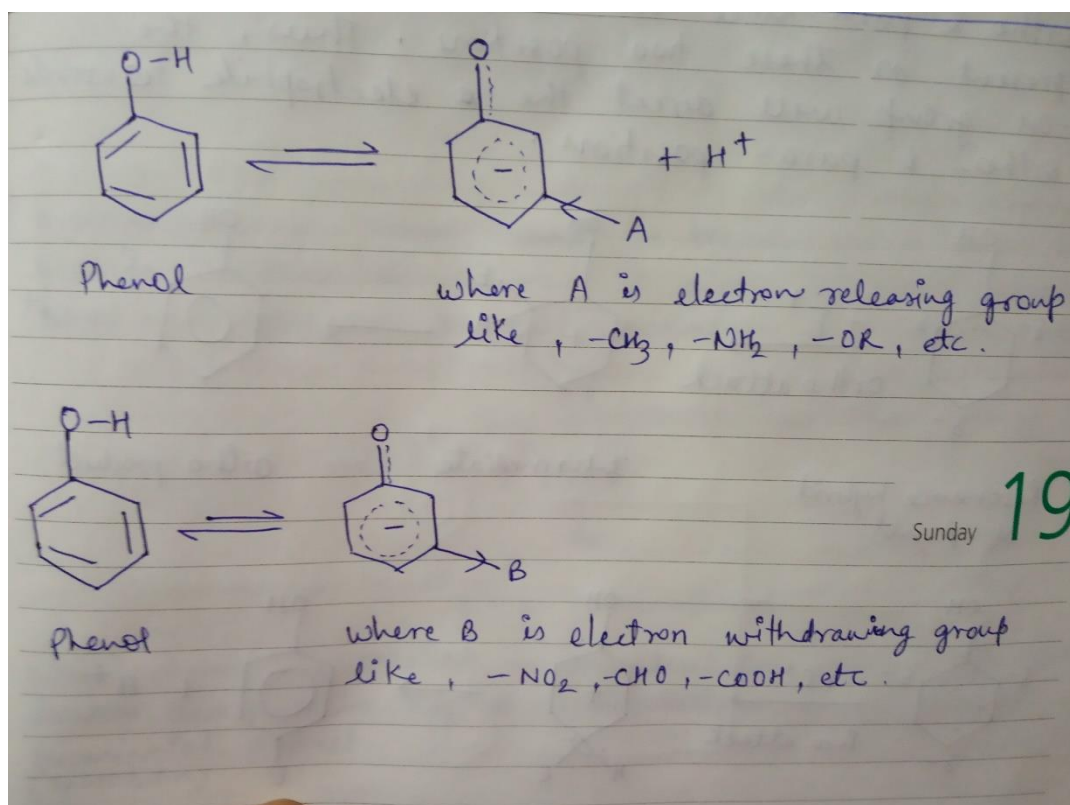 O-H
O
-
+ H+
A
Phenol
where A is electron releasing group
like, -CH3, -NH2, -OR, etc.
O-H
O
-
B
Sunday 19
Phenol
where B is electron withdrawing group
like, -NO2, -CHO, -COOH, etc.